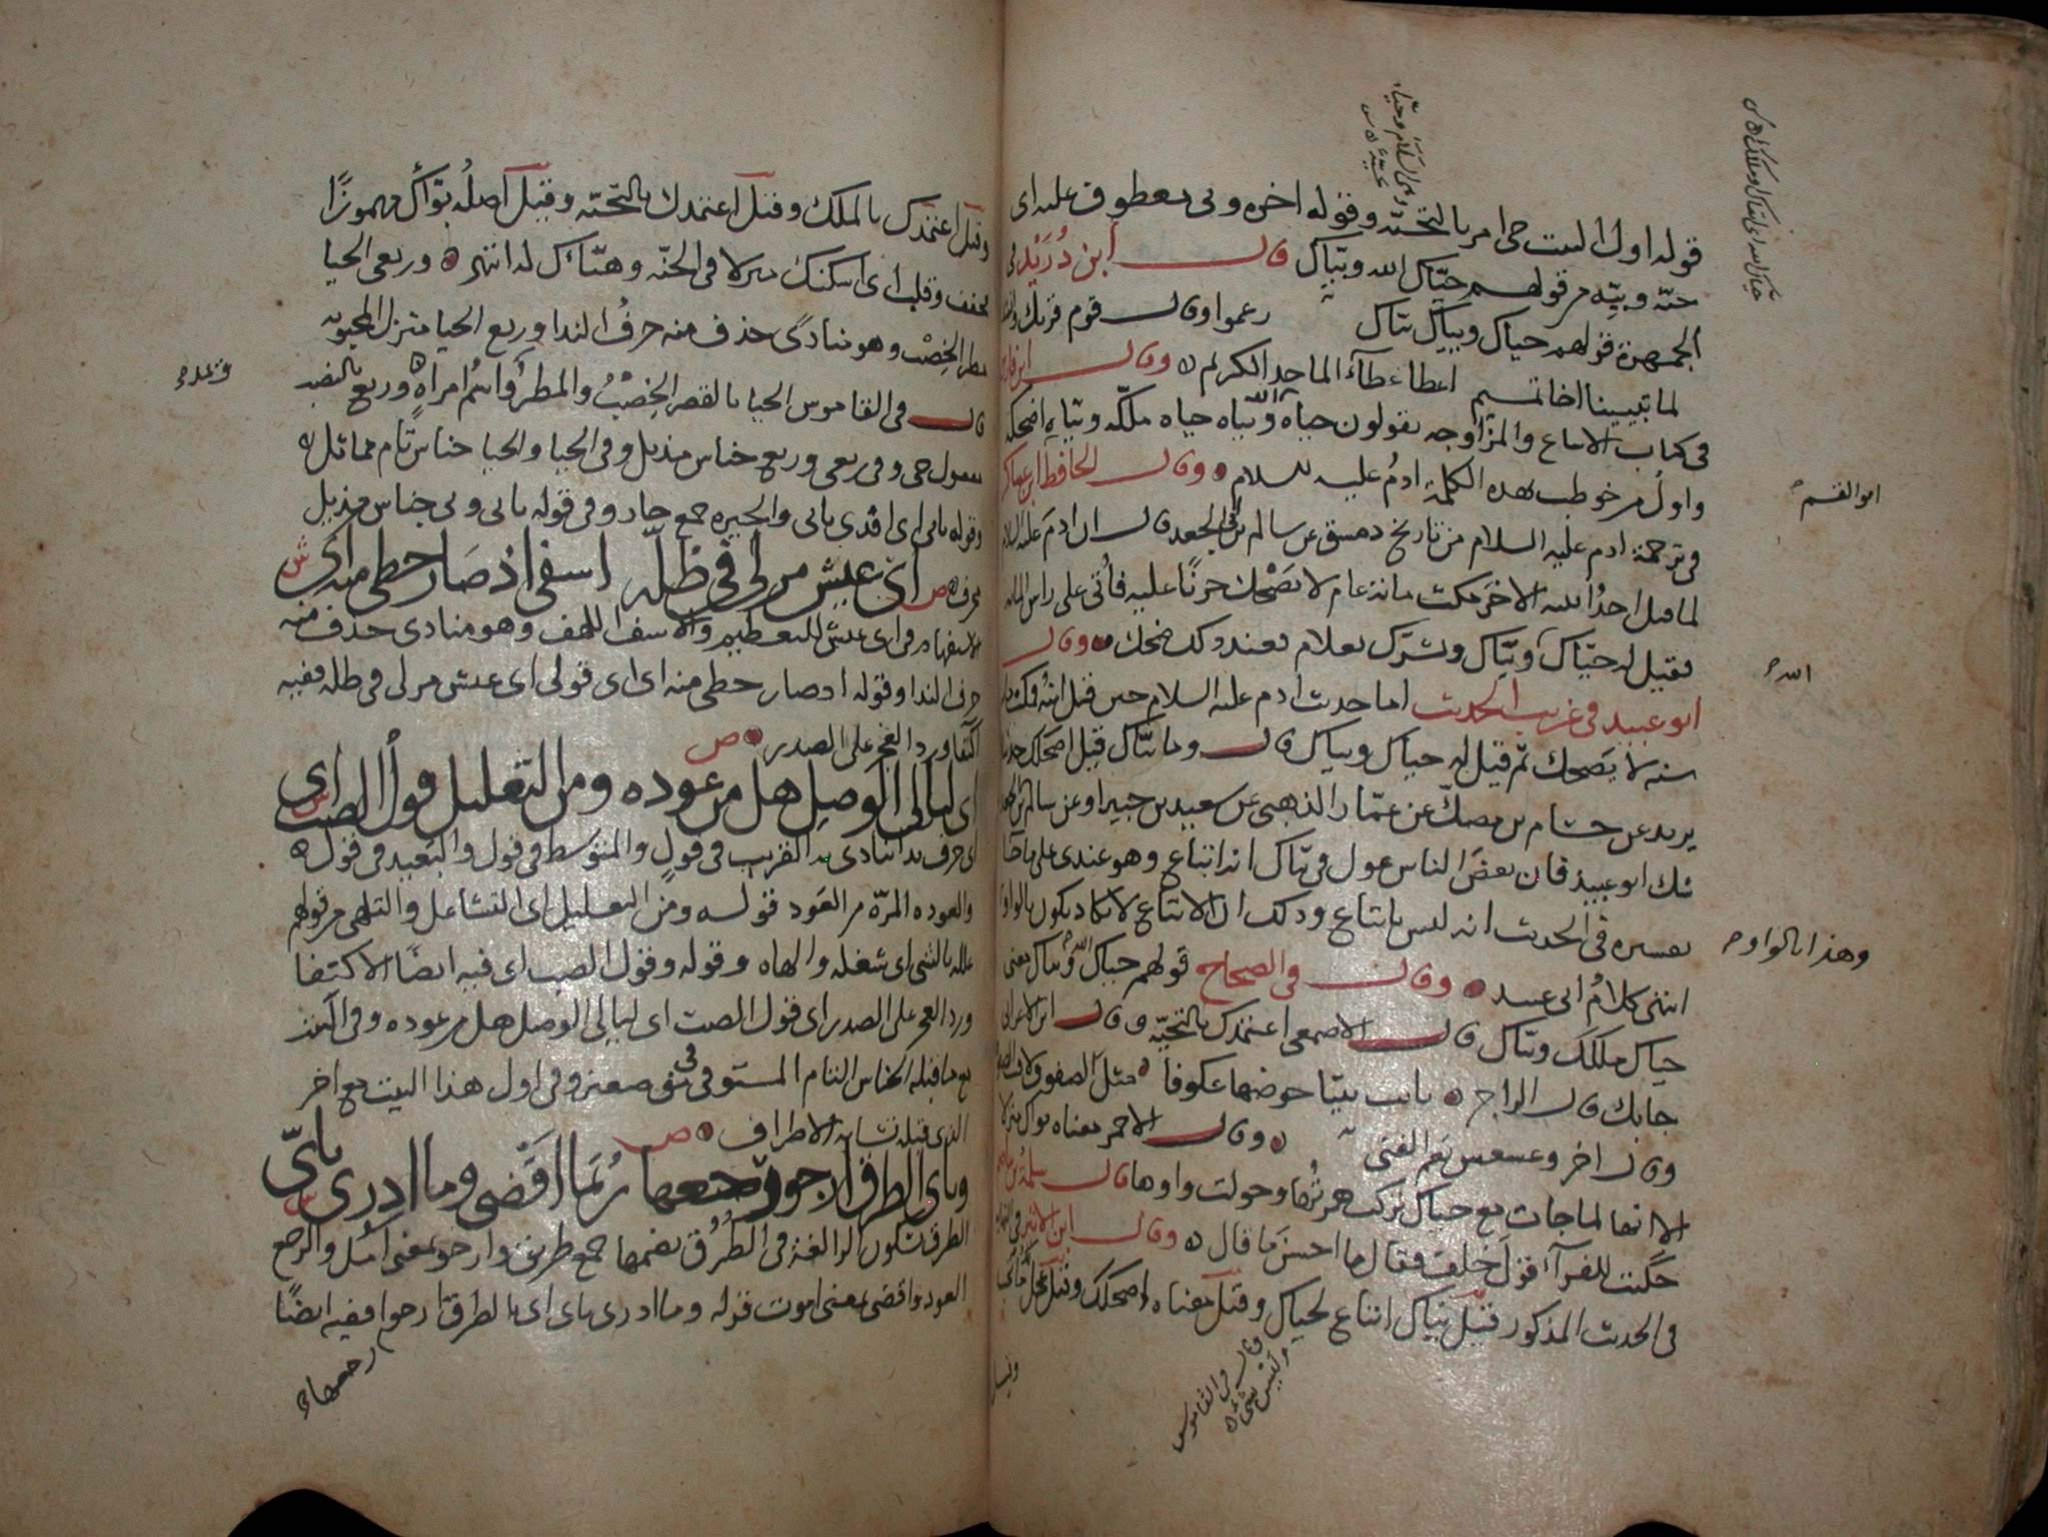 قوله اول البيت حى امر بالتحيّه وقوله اخره وبى معطوف عليه اى
حيّه وبيّه من قولهم حيّاك الله وبيّاك قال ابن دُرَيْد فى
الجمهرة قولهم حياك وبيّاك بيّاك زعموا وقال قوم قربك وانشد
لما تبيينا اخا تميم اعطا عطآء الماجد الكريم ه وقال ابن فارس
فى كتاب الاتباع والمزاوجه يقولون حياه الله وبيّاه حياه ملّكه وبيّاه اضحكه
واول من خوطب بهذه الكلمة ادمُ عليه السلام ه وقال الحافظ ابن عساكر
فى ترجمة ادم عليه السلام من تاريخ دمشق عن سالم بن ابى الجعد قال ان ادم عليه السلام
لما قتل احدُ ابنيه الاخر مكث مائة عام لا يضحك حزنًا عليه فأُتى على راس المائه
فقيل له حيّاك وبيّاك وبشرك بغلام فعند ذلك ضحك ه وقال
ابو عبيد فى غريب الحديث اما حديث ادم عليه السلام حين قتل ابنُه فمكث مائة
سنه لا يضحك ثم قيل له حياك وبياك قال وما بيّاك قيل اضحكك حدثناه
يزيد عن حسام بن مصكّ عن عمّار الذهبى عن سعيد بن جبير او عن سالم بن ابى الجعد
شك ابو عبيد فان بعض الناس يقول فى بيّاك انه اتباع وهو عندى على ما جآ
تفسيره فى الحديث انه ليس باتباع وذلك ان الاتباع لا يكاد يكون بالواو
وهذا بالواو
انتهى كلامُ ابى عبيد ه وقال فى الصحاح قولهم حياك الله وبياك معنى
حياك ملكك وبيّاك قال الاصمعى اعتمدك بالتحيّه وقال ابن الاعرابى
جابك قال الراجز ه باتت تبيّا حوضها عكوفا ه مثل الصفوف لاقت الصفوفا
وقال اخر وعسعس نعم الفتى ه وقال الاحمر معناه بواك منزلا
الا انها لما جات مع حياك تركت همزتُها وحولت واوها قال سلمة بن عاصم
حكيت للفرآء قول خلف فقال ما احسن ما قال ه وقال ابن الاثير فى النهايه
فى الحديث المذكور قيل بيّاك اتباع لحياك وقيل معناه اضحكك وقيل عجل
وقال فى القاموس
وليس بشىء ه
ابو القسم
الله
وقيل اعتمدك بالملك وقيل اعتمدك بالتحيّه وقيل اصلُه بوّأك مهموزًا
فخفف وقلب اى اسكنك منزلا فى الجنّه وهيّأك له انتهى ه وربعى الحيا
مطر الخِصْب وهو منادى حذف منه حرفُ الندا وربع الحيا منزل المحبوبه
قال فى القاموس الحيا بالقصر الخِصْبُ والمطرُ واسْم امراةٍ ه وربع بالنصب
وعده
مفعول حى وفى ربعى وربع جناس مذيل وفى الحيا والحيا جناس تام مماثل ه
وقوله بابى اى افدى بابى والجيره جمع جار وفى قوله بابى وبى جناس مذيل
محرف ه ص اىّ عيش مر لى فى ظلّه اسفى اذ صار حظى منه اى ش
الاستفهام فى اى عيش للتعظيم والاسف اللهف وهو منادى حذف منه
حرف الندا وقوله اذ صار حظى منه اى اى قولى اى عيش مر لى فى ظله ففيه
اكتفا ورد العجز على الصدر ه ص
اى ليالى الوصل هل من عوده ومن التعليل قول الصب اى
اى حرف ندا ينادى به القريب فى قولٍ والمتوسط فى قول والبعيد فى قول ه
والعوده المرّه من العَود قوله ومن التعليل اى التشاغل والتلهى من قولهم
علله بالشى اى شغله والهاه وقوله وقول الصب اى فيه ايضًا الاكتفا
ورد العجز على الصدر اى قول الصب اى ليالى الوصل هل من عوده وفى اكتفا
مع ما قبله الجناس التام المستوفى وفى اول هذا البيت مع اخر
الذى قبله تشابه الاطراف ه ص
وباى الطرق ارجو رجعها رُبَما اقضى وما ادرى باىّ
الطرق سكون الرا لغة فى الطُرُق بضمها جمع طريق وارجو بمعنى آمُل والرجع
العود واقضى بمعنى اموت قوله وما ادرى باى اى باى الطرق ارجو ففيه ايضًا
رجعها